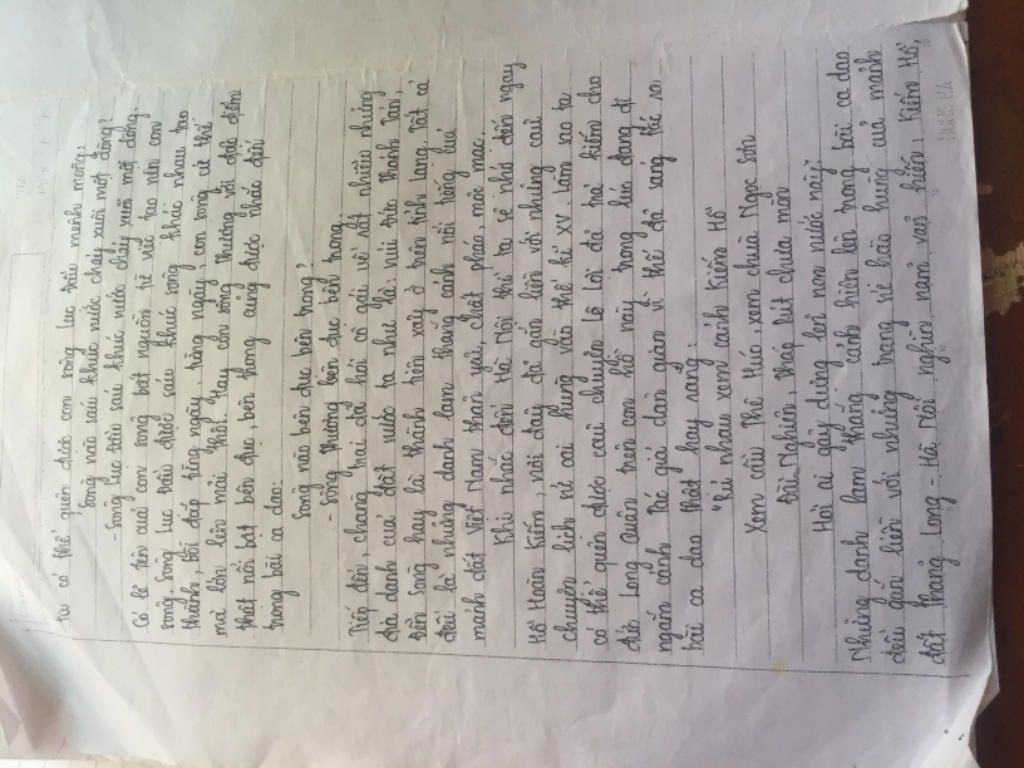 ta có thể quên được con sông Lục Đầu mênh mông:
Sông nào sáu khúc nước chảy xuôi một dòng?
- Sông Lục Đầu sáu khúc nước chảy xuôi một dòng.
Có lẽ tên của con sông bắt nguồn từ việc tạo nên con
sông. Sông Lục Đầu được sáu khúc sông khác nhau tạo
thành, bồi đắp từng ngày, từng ngày, con sông cứ thế
mà lớn lên mãi thôi. Hay còn sông Thương với đặc điểm
thật nổi bật bên đục, bên trong cũng được nhắc đến
trong bài ca dao:
Sông nào bên đục bên trong,
- Sông Thương bên đục bên trong.
Tiếp đến, chàng trai đã hỏi cô gái về rất nhiều những
địa danh của đất nước ta như là: núi Đức Thánh Tản,
Đền Sòng hay là thành tiên xây ở trên tỉnh Lạng. Tất cả
đều là những danh lam thắng cảnh nổi tiếng của
mảnh đất Việt Nam thân yêu, chất phác, mộc mạc.
Khi nhắc đến Hà Nội thì ta sẽ nhớ đến ngay
Hồ Hoàn Kiếm, nơi đây đã gắn liền với những câu
chuyện lịch sử oai hùng vào thế kỉ XV. Làm sao ta
có thể quên được câu chuyện Lê Lợi đã trả kiếm cho
đức Long Quân trên con hồ này trong lúc đang đi
ngắm cảnh. Tác giả dân gian vì thế đã sáng tác ra
bài ca dao thật hay rằng:
"Rủ nhau xem cảnh Kiếm Hồ
Xem cầu Thê Húc, xem chùa Ngọc Sơn
Đài Nghiên, Tháp Bút chưa mòn
Hỏi ai gây dựng lên non nước này?
Những danh lam thắng cảnh hiện lên trong bài ca dao
đều gắn liền với những trang vẻ hào hùng của mảnh
đất Thăng Long - Hà Nội nghìn năm văn hiến. Kiếm Hồ,